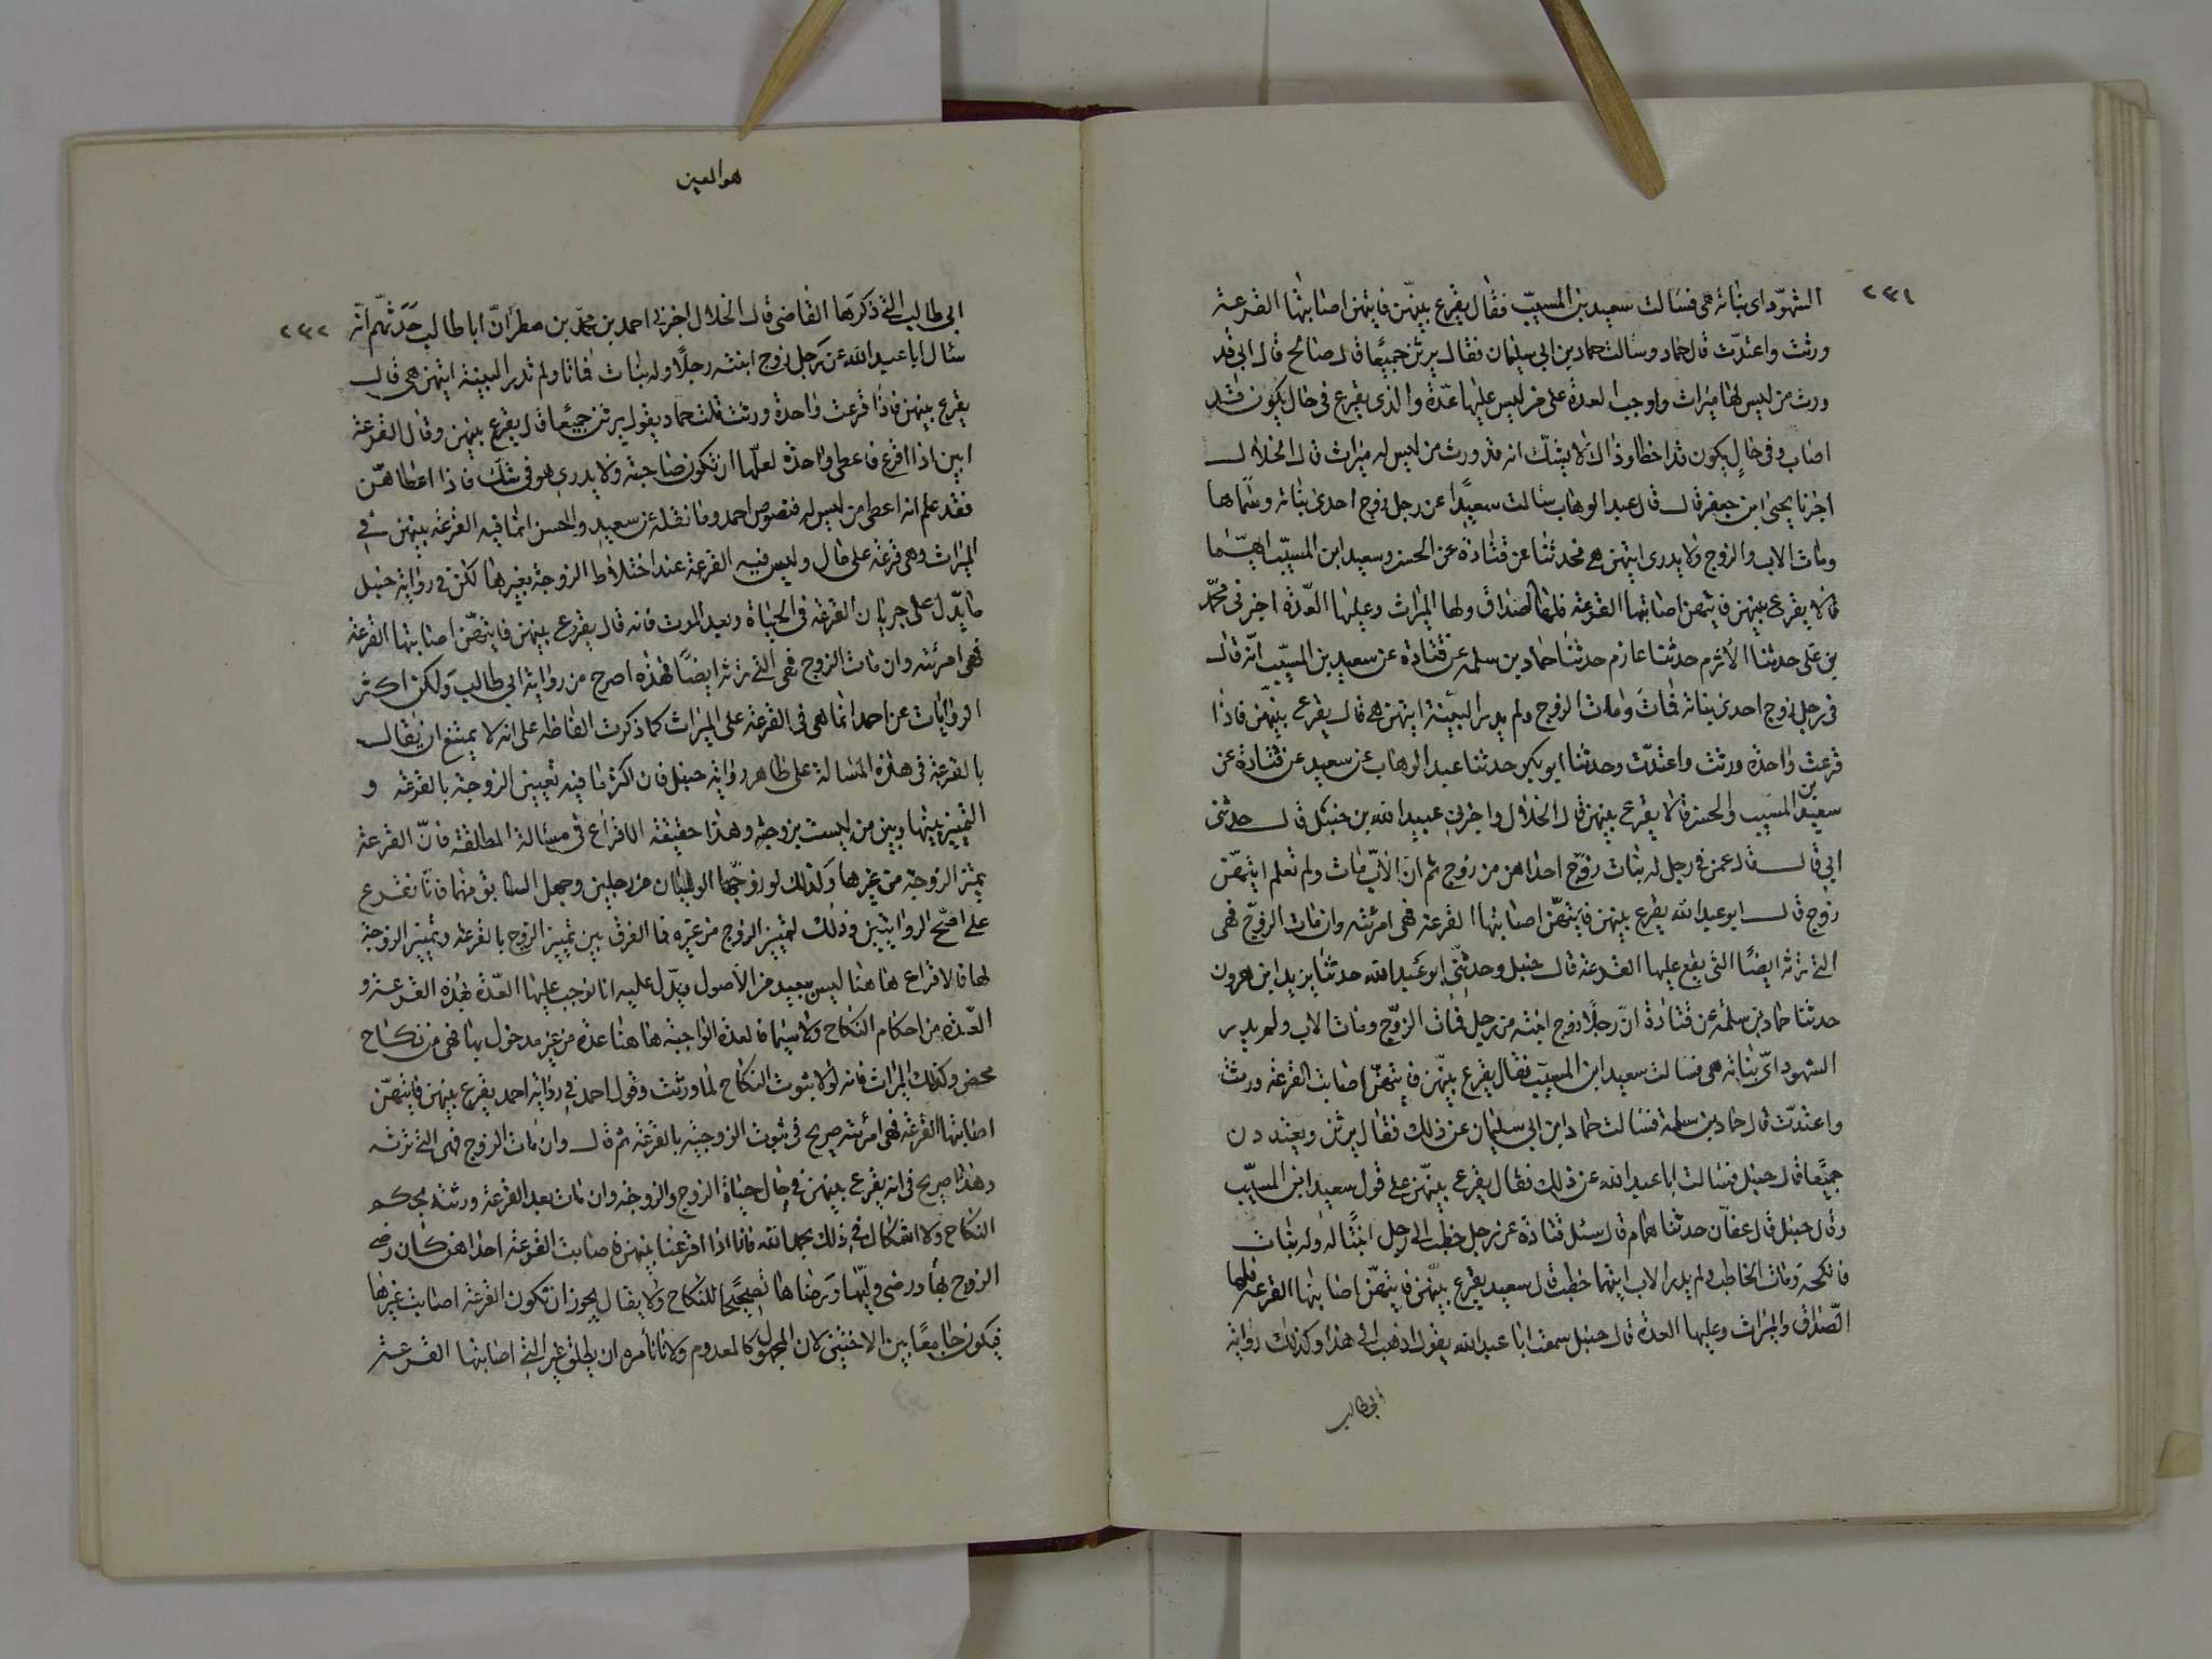 ٢٣١
الشهود ای بناته هی فسالت سعید بن المسیب فقال یقرع بینهن فایتهن اصابتها القرعة
ورثت واعتدت قال حماد وسالت حماد بن ابی سلیمان فقال یرثن جمیعا قال صالح قال ابی قد
ورث من لیس لها میراث واوجب العدة علی من لیس علیها عدة والذی یقرع فی حال یکون قد
اصاب وفی حال یکون قد اخطا وذاك لا یشك انه قد ورث من لیس له میراث قال الخلال
اخبرنا یحیی ابن جعفر قال قال عبد الوهاب سالت سعیدا عن رجل زوج احدی بناته وسماها
ومات الاب والزوج ولا یدری ایتهن هی فحدثنا عن قتادة عن الحسن وسعید ابن المسیب انهما
قالا یقرع بینهن فایتهن اصابتها القرعة فلها الصداق ولها المیراث وعلیها العدة اخبرنی محمد
بن علی حدثنا الاثرم حدثنا عارم حدثنا حماد بن سلمه عن قتادة عن سعید بن المسیب انه قال
فی رجل زوج احدی بناته فمات ومات الزوج ولم یدر البینة ایتهن هی قال یقرع بینهن فاذا
قرعت واحدة ورثت واعتدت وحدثنا ابو بکر حدثنا عبد الوهاب عن سعید عن قتادة عن
سعید بن المسیب والحسن قالا یقرع بینهن قال الخلال واخبرنی عبید الله بن حنبل قال حدثنی
ابی قال قال عمن فی رجل له بنات زوج احداهن من زوج ثم ان الاب مات ولم تعلم ایتهن
زوج قال ابو عبد الله یقرع بینهن فایتهن اصابتها القرعة فهی امرئته وان مات الزوج فهی
التی ترثه ایضا التی یقع علیها القرعة قال حنبل وحدثنی ابو عبد الله حدثنا یزید ابن هرون
حدثنا حماد بن سلمة عن قتادة ان رجلا زوج ابنته من رجل فمات الزوج ومات الاب ولم یدر
الشهود ای بناته هی فسالت سعید ابن المسیب فقال یقرع بینهن فایتهن اصابت القرعة ورثت
واعتدت قال حماد بن سلمة فسالت حماد ابن ابی سلیمان عن ذلك فقال یرثن ویعتددن
جمیعا قال حنبل فسالت ابا عبد الله عن ذلك فقال یقرع بینهن علی قول سعید ابن المسیب
وقال حنبل قال عفان حدثنا همام قال سئل قتادة عن رجل خطب الی رجل ابنتا له وله بنات
فانکحه ومات الخاطب ولم یدر الاب ایتهما خطب قال سعید یقرع بینهن فایتهن اصابتها القرعة فلها
الصداق والمیراث وعلیها العدة قال حنبل سمعت ابا عبد الله یقول اذهب الی هذا وکذلك روایة
ابی طالب
هو المعین
٢٣٢
ابی طالب التی ذکرها القاضی قال الخلال اخبرنی احمد بن محمد بن مطر ان ابا طالب حدثهم انه
سئال ابا عبد الله عن رجل زوج ابنته رجلا وله بنات فماتا ولم تدر البینة ایتهن هی قال
یقرع بینهن فاذا قرعت واحدة ورثت قلت حماد یقول یرثن جمیعا قال یقرع بینهن وقال القرعة
ابین اذا اقرع فاعطی واحدة لعلها ان تکون صاحبته ولا یدری هو فی شك فاذا اعطاهن
فقد علم انه اعطی من لیس له فنصوص احمد وما نقله عن سعید والحسن انما فیه القرعة بینهن فی
المیراث وهی قرعة علی مال ولیس فیه القرعة عند اختلاط الزوجة بغیرها لکن فی روایة حنبل
ما یدل علی جریان القرعة فی الحیاة وبعد الموت فانه قال یقرع بینهن فایتهن اصابتها القرعة
فهی امرئته وان مات الزوج فهی التی ترثه ایضا فهذه اصرح من روایة ابی طالب ولکن اکثر
الروایات عن احمد انما هی فی القرعة علی المیراث کما ذکرت الفاظه علی انه لا یمتنع ان یقال
بالقرعة فی هذه المسالة علی ظاهر روایة حنبل فان اکثر ما فیه تعیین الزوجة بالقرعة و
التمییز بینها وبین من لیست بزوجة وهذا حقیقة الاقراع فی مسالة المطلقة فان القرعة
تمیز الزوجة من غیرها وکذلك لو زوجها الولیان من رجلین وجهل السابق منهما فانا نقرع
علی اصح الروایتین وذلك لتمییز الزوج من غیره فما الفرق بین تمییز الزوج بالقرعة وتمییز الزوجة
لها فالاقراع هاهنا لیس ببعید من الاصول ویدل علیه انا نوجب علیها العدة بهذه القرعة و
العدة من احکام النکاح ولا سیما فالعدة الواجبة هاهنا عدة من غیر مدخول بها فهی من نکاح
محض وکذلك المیراث فانه لولا ثبوت النکاح لما ورثت وقول احمد فی روایة احمد یقرع بینهن فایتهن
اصابتها القرعة فهی امرئته صریح فی ثبوت الزوجیة بالقرعة ثم قال وان مات الزوج فهی التی ترثه
وهذا صریح فی انه یقرع بینهن فی حال حیاة الزوج والزوجة وان مات بعد القرعة ورثته بحکم
النکاح ولا اشکال فی ذلك بحمد الله فانا اذا اقرعنا بینهن فاصابت القرعة احداهن کان رضی
الزوج بها ورضی ولیها ورضاها تصحیحا للنکاح ولا یقال یجوز ان تکون القرعة اصابت غیرها
فیکون جامعا بین الاختین لان المجهول کالمعدوم ولانا نامره ان یطلق غیر التی اصابتها القرعة